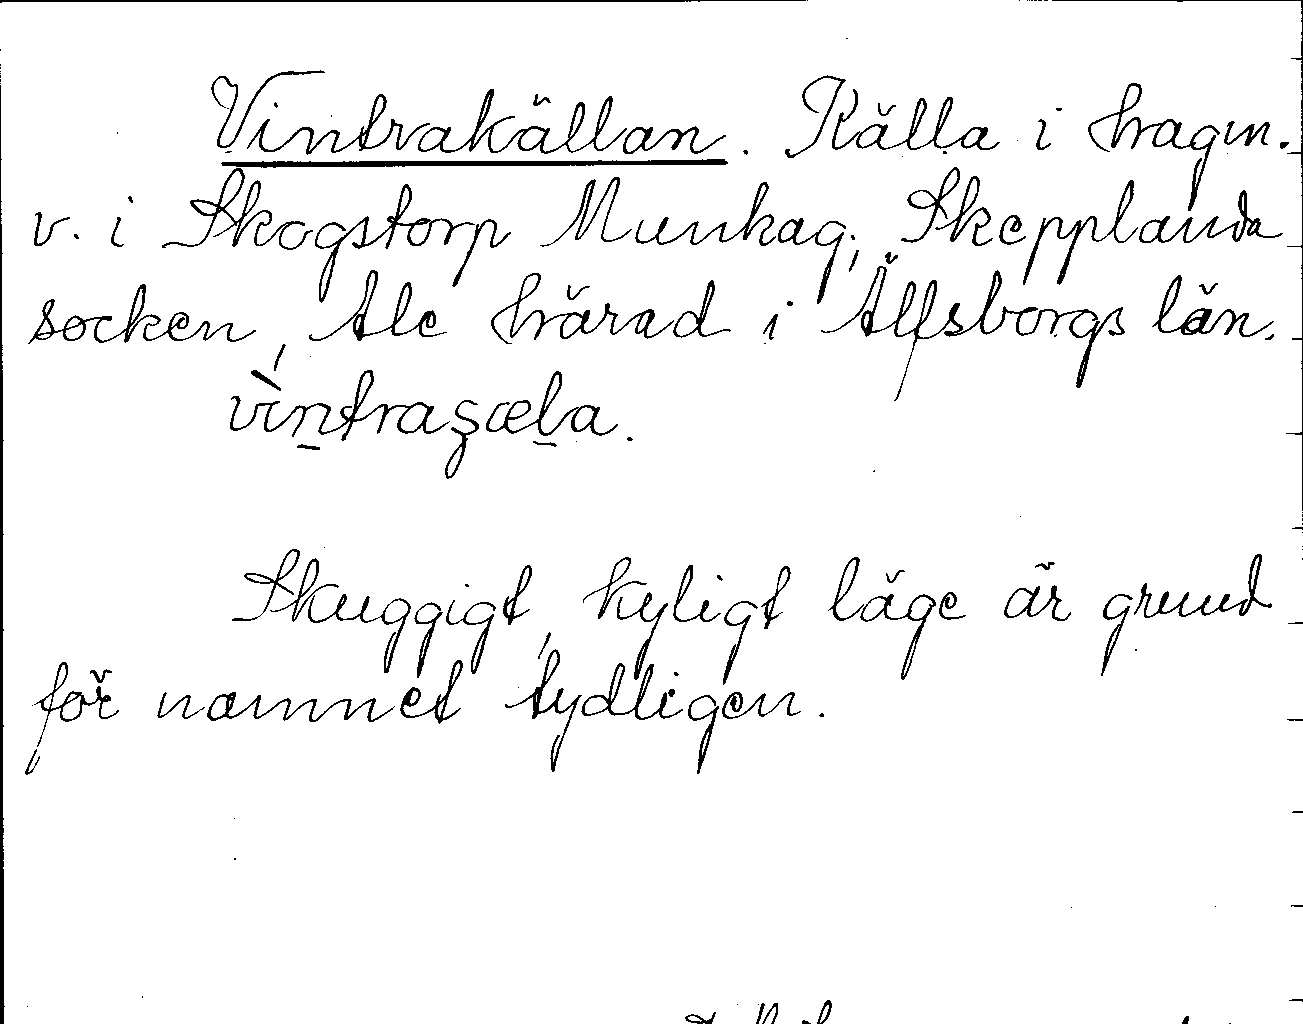 Vintrakällan. Källa i hagen.
v. i Skogstorp Munkag., Skepplanda
socken, Ale härad i Älfsborgs län.
vìntraşæla.
Skuggigt, kyligt läge är grund
för namnet tydligen.